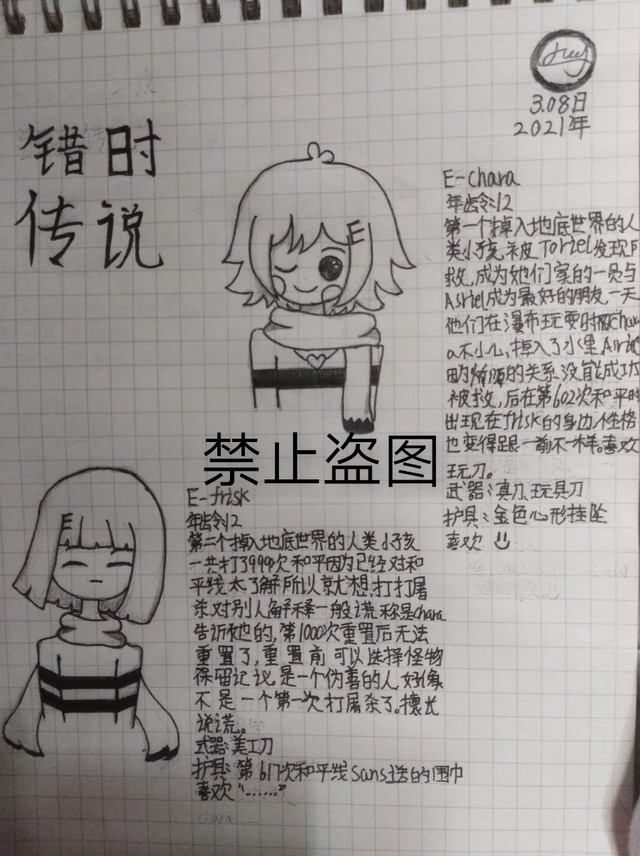 3.08日
2021年
错时
传说
E-chara
年龄:12
第一个掉入地底世界的人
类小孩,被Toriel发现所
救,成为她们家的一员与
Asriel成为最好的朋友,一天
他们在瀑布玩耍时因char
a不小心掉入了水里Asriel
的 的关系没能成功
被救,后在第602次和平时
出现在frisk的身边,性格
也变得跟一前不一样。喜欢
玩刀。
武器:真刀,玩具刀
护具:金色心形挂坠
喜欢
禁止盗图
E-frisk
年龄12
第二个掉入地底世界的人类小孩
一共打了999次和平因为已经对和
平线太了解所以就想打打屠
杀对别人解释一般谎称是chara
告诉她的,第1000次重置后无法
重置了,重置前可以选择怪物
保留记议,是一个伪善的人,好像
不是一个第一次打屠杀了。擅长
说谎。
武器:美工刀
护具:第617次和平线sans送的围巾
喜欢"……"